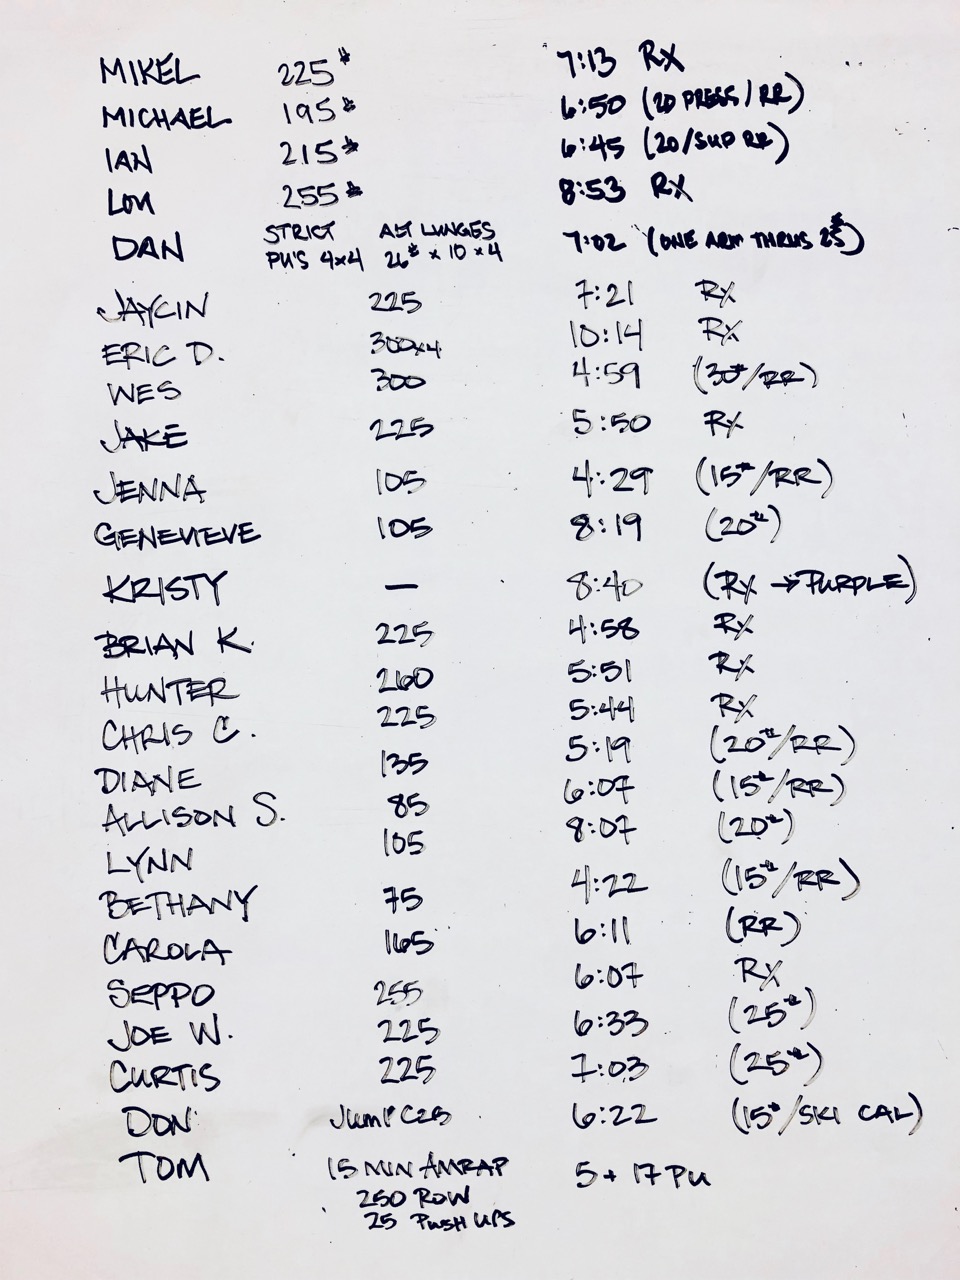 MIKEL 225# 7:13 RX
MICHAEL 195# 6:50 (20 PRESS/RR)
IAN 215# 6:45 (20/SUP RR)
LOU 255# 8:53 RX
DAN STRICT PU'S 4x4 ALT LUNGES 26# x 10 x 4 7:02 (ONE ARM THRUS 25#)
JAYCIN 225 7:21 RX
ERIC D. 300x4 10:14 RX
WES 300 4:59 (30#/RR)
JAKE 225 5:50 RX
JENNA 105 4:29 (15#/RR)
GENEVIEVE 105 8:19 (20#)
KRISTY — 8:40 (RX → PURPLE)
BRIAN K. 225 4:58 RX
HUNTER 260 5:51 RX
CHRIS C. 225 5:44 RX
DIANE 135 5:19 (20#/RR)
ALLISON S. 85 6:07 (15#/RR)
LYNN 105 8:07 (20#)
BETHANY 75 4:22 (15#/RR)
CAROLA 165 6:11 (RR)
SEPPO 255 6:07 RX
JOE W. 225 6:33 (25#)
CURTIS 225 7:03 (25#)
DON JUMP 6:22 (15#/SKI CAL)
TOM 15 MIN AMRAP 5 + 17 PU
250 ROW
25 PUSH UPS